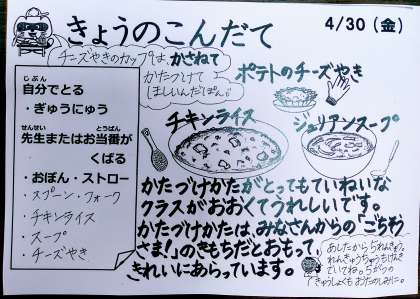 きょうのこんだて
4/30(金)
チーズやきのカップは、かさねて
かたづけて
ほしいんだぽん。
ポテトのチーズやき
チキンライス
ジュリアンスープ
じぶん
自分でとる
・ぎゅうにゅう
せんせい とうばん
先生またはお当番が
くばる
・おぼん・ストロー
・スプーン・フォーク
・チキンライス
・スープ
・チーズやき
かたづけかたがとってもていねいな
クラスがおおくてうれしいです。
かたづけかたは、みなさんからの「ごちそう
さま!」のきもちだとおもって、
きれいにあらっています。
あしたから5れんきゅう。
れんきゅうちゅうもげんき
でいてね。5がつの
きゅうしょくもおたのしみに。